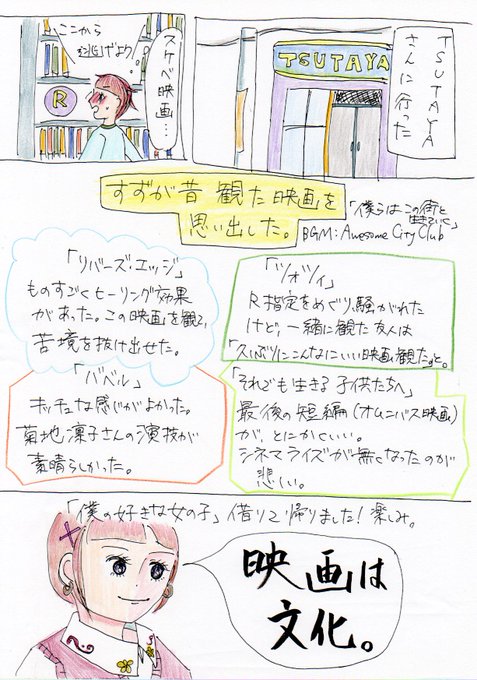 TSUTAYA
さんに行った
TSUTAYA
スケベ映画…
ここから
逃げよう!
R
すずが昔 観た映画を
思い出した。
「僕らはこの街と
生きていく」
BGM: Awesome City Club
「リバーズ・エッジ」
ものすごくヒーリング効果
があった。この映画を観て、
苦境を抜け出せた。
「ツォツィ」
R指定をめぐり、騒がれた
けど、一緒に観た友人は
「久しぶりにこんなにいい映画観た」と。
「バベル」
キッチュな感じがよかった。
菊地凛子さんの演技が
素晴らしかった。
「それでも生きる子供たちへ」
最後の短編(オムニバス映画)
が、とにかくいい。
シネマライズが無くなったのが
悲しい。
「僕の好きな女の子」借りて帰りました!楽しみ。
映画は
文化。